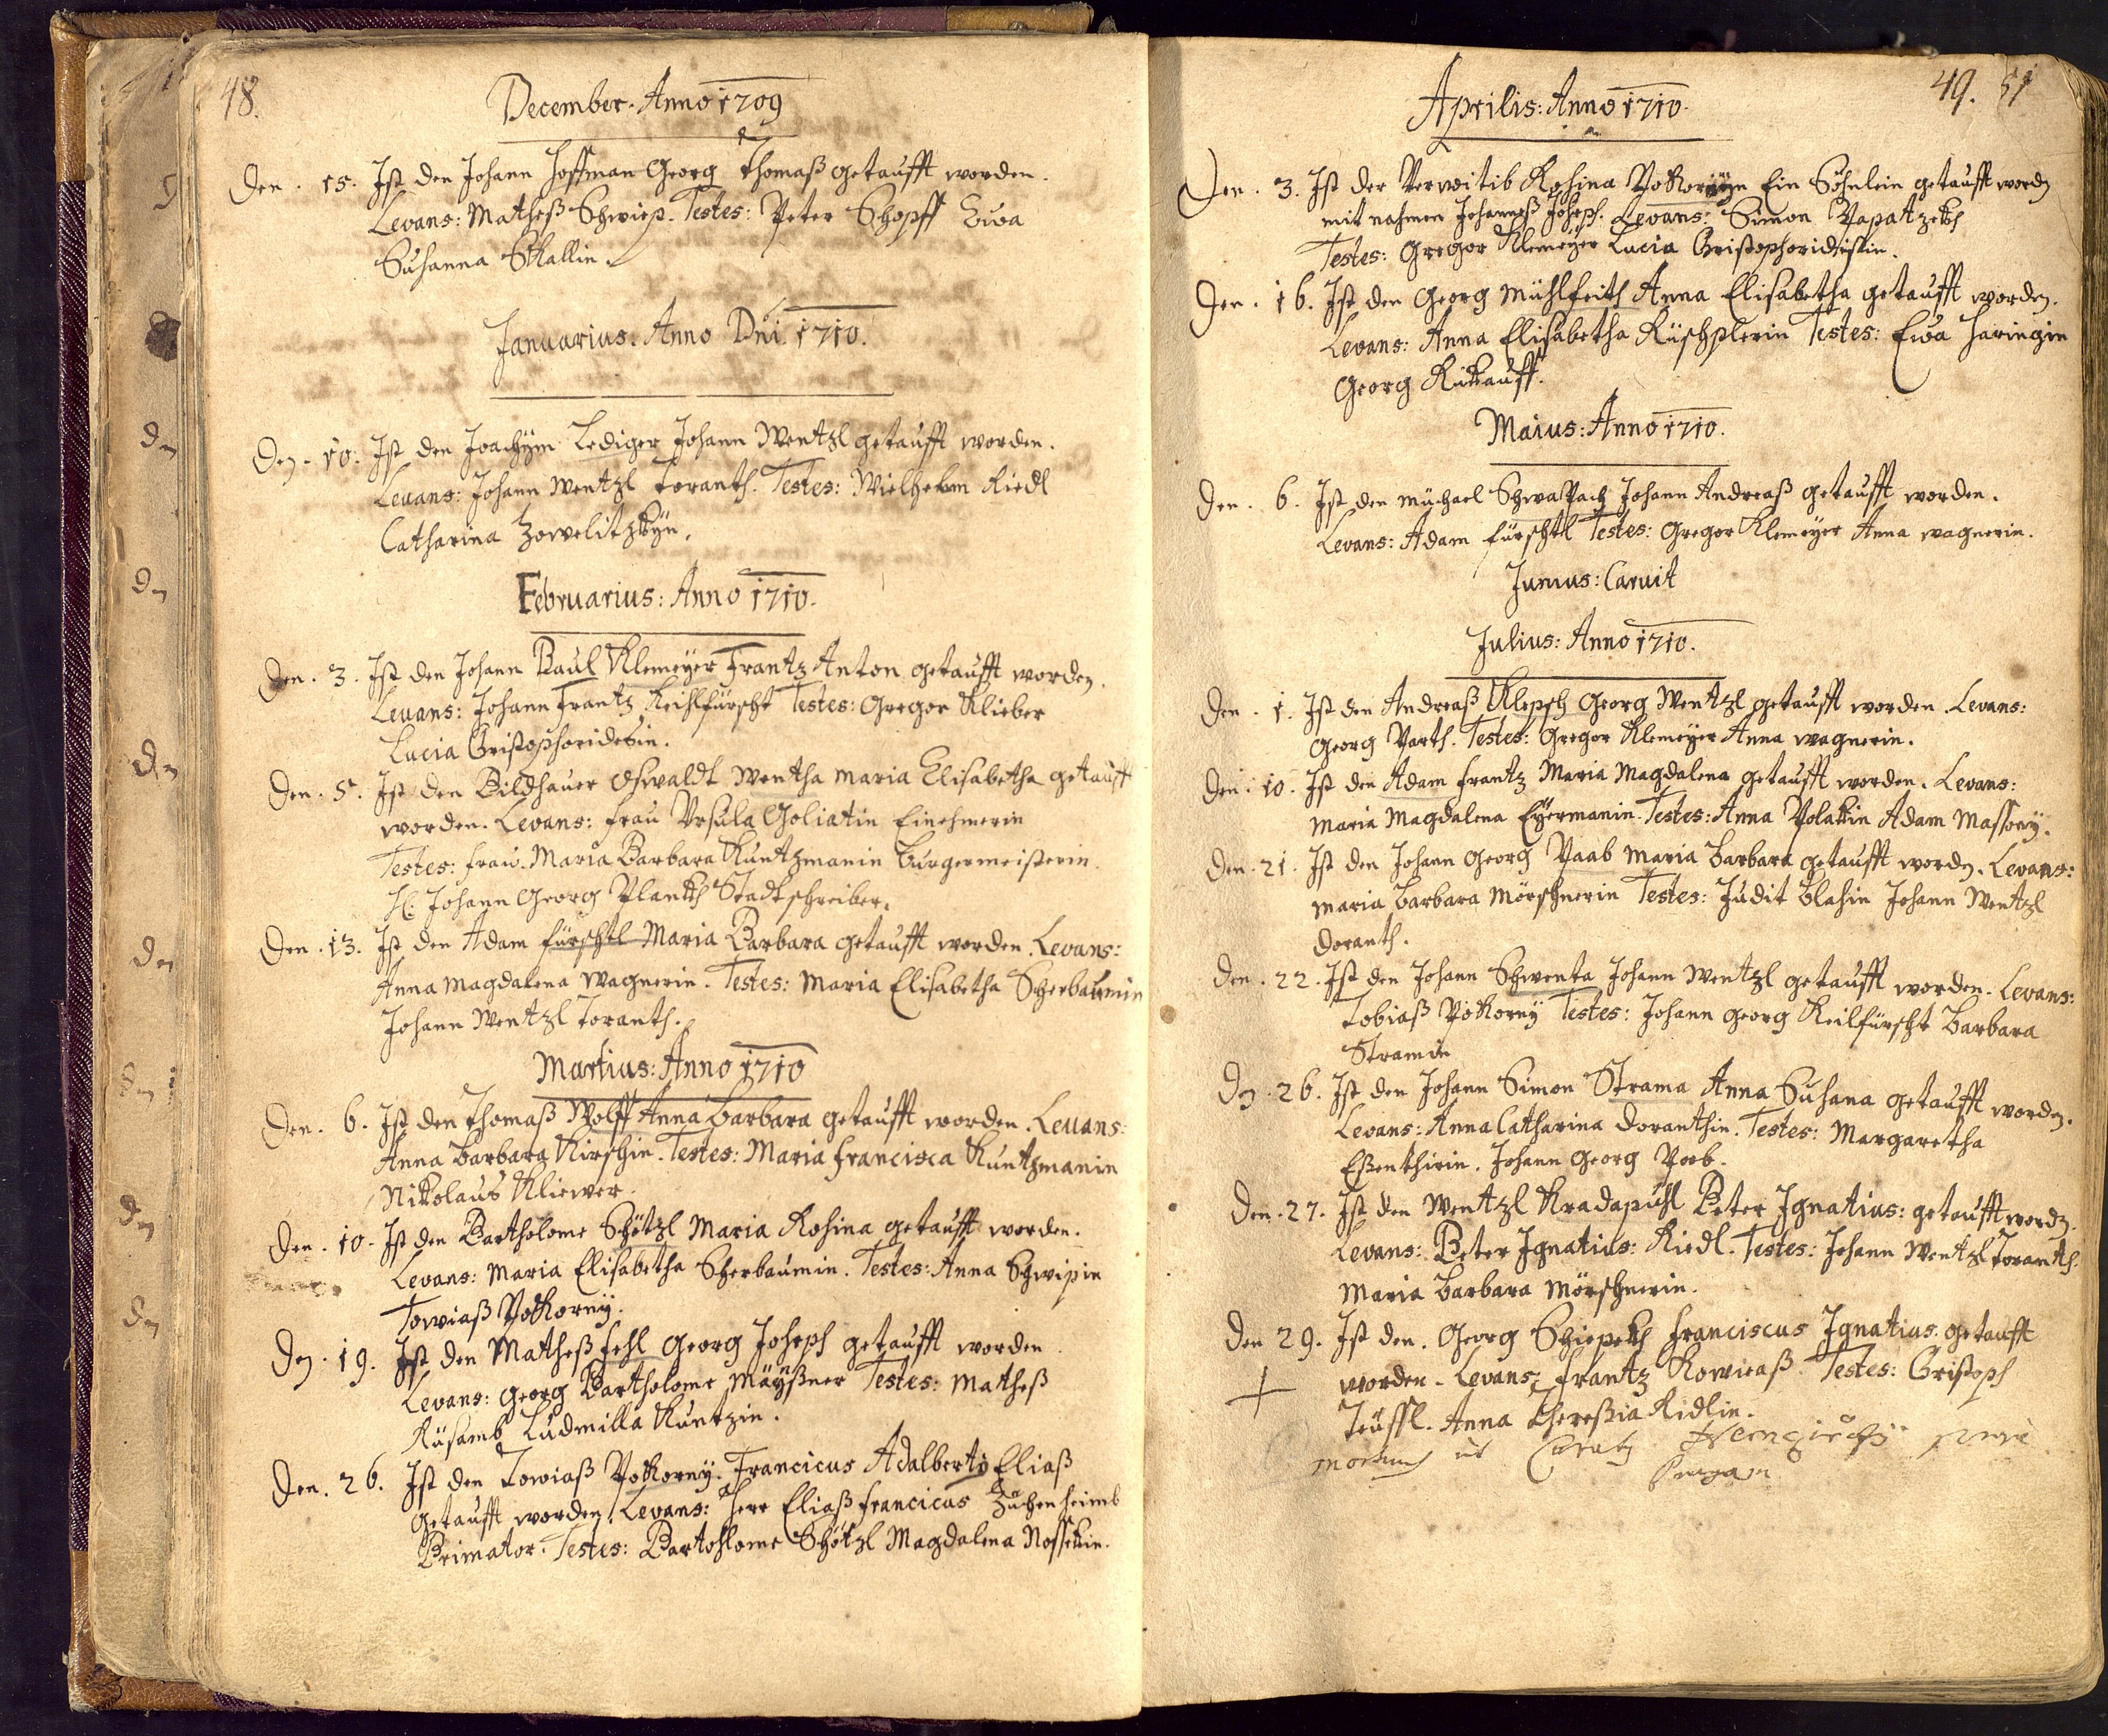 48.
December. Anno 1709
Den. 15. Ist den Johann Hoffman Georg Thomaß getaufft worden.
Levans: Matheß Schwiep. Testes: Peter Schopff Ewa
Susanna Skallin.
Januarius. Anno Dni. 1710.
Den. 10. Ist den Joachÿm Lediger Johann Wentzl getaufft worden.
Levans: Johann Wentzl Toranth. Testes: Wielhelm Riedl
Catharina
Februarius: Anno 1710.
Den. 3. Ist den Johann Paul Klemeÿer Frantz Anton getaufft worden.
Levans: Johann Frantz Keihlfürscht Testes: Gregor Klieber
Lucia Cristophoridesin.
Den. 5. Ist den Bildhauer Oswaldt Wentha Maria Elisabetha getaufft
worden. Levans: Frau Vrsula Goliatin Einehmerin
Testes: Frau. Maria Barbara Kuntzmanin Burgermeisterin.
H: Johann Georg Plankh Stadtschreiber.
Den. 13. Ist den Adam Fürschtl Maria Barbara getaufft worden. Levans:
Anna Magdalena Wagnerin. Testes: Maria Elisabetha Scherbaumin
Johann Wentzl Toranth.
Martius: Anno 1710
Den. 6. Ist den Thomaß Wolff Anna Barbara getaufft worden. Levans:
Anna Barbara Kirschin. Testes: Maria Francisca Kuntzmanin
Nikolaus Kliewer.
Den. 10. Ist den Bartholome Schötzl Maria Rosina getaufft worden.
Levans: Maria Elisabetha Scherbaumin. Testes: Anna Schwipin
Towiaß Pokornÿ.
Den. 19. Ist den Matheß Fehl Georg Joseph getaufft worden.
Levans: Georg Bartholome Maÿßner Testes: Matheß
Rüsamb Ludmilla Kuntzin.
Den. 26. Ist den Towiaß Pokornÿ. Francicus Adalberty Eliaß
getaufft worden. Levans: Herr Eliaß Francicus
Primator. Testes: Bartohlome Schötzl Magdalena Nossekin.
49. 51
Aprilis: Anno 1710.
Den. 3. Ist der Verwitib Rosina Pokornÿn Ein Söhnlein getaufft wordn
mit nahmen Johanneß Joseph. Levans: Simon Papatzekh
Testes: Gregor Klemeÿer Lucia
Den. 16. Ist den Georg Mühlfeith Anna Elisabetha getaufft worden.
Levans: Anna Elisabetha Rüschplerin Testes: Ewa Haringin
Georg Rükauff.
Maius: Anno 1710.
Den. 6. Ist den Müchael Schwapach Johann Andreaß getaufft worden.
Levans: Adam Fürschtl Testes: Gregor Klemeÿer Anna Wagnerin.
Junius: Caruit
Julius: Anno 1710.
Den. 1. Ist den Andreaß Klepsch Georg Wentzl getaufft worden. Levans:
Georg Parth. Testes: Gregor Klemeÿer Anna Wagnerin.
Den. 10. Ist den Adam Frantz Maria Magdalena getaufft worden. Levans:
Maria Magdalena Eÿermanin. Testes: Anna Polakin Adam Massonÿ.
Den. 21. Ist den Johann Georg Paab Maria Barbara getaufft wordn. Levans:
Maria Barbara Mörschnerin Testes: Judit Blahin Johann Wentzl
Doranth.
Den. 22. Ist den Johann Schwenta Johann Wentzl getaufft worden. Levans:
Tobiaß Pokornÿ Testes: Johann Georg Keilfürscht Barbara
Stramin
Den. 26. Ist den Johann Simon Strama Anna Susana getaufft worden.
Levans: Anna Catharina Doranthin. Testes: Margaretha
Eßenthirin. Johann Georg Paab.
Den. 27. Ist den Wentzl Kradapuhl Peter Ignatius: getaufft wordn.
Levans: Peter Ignatius: Riedl. Testes: Johann Wentzl Toranth.
Maria Barbara Mörschnerin.
Den 29. Ist den. Georg Schiepekh Franciscus Ignatius. getaufft
worden. Levans: Frantz Kowieaß. Testes: Cristoph
Teüffl. Anna Thereßia Ridlin.
ut
Pragam